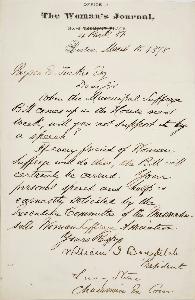 OFFICE OF
The Woman's Journal,
4 Park St
Boston, March 1878
Dear Sir
When the Municipal Suffrage
Bill comes up in the House next
week, will you not support it by
a speech?
If every friend of Woman
Suffrage will do this, the Bill will
certainly be carried. Your
personal speech and help is
earnestly solicited by the
Executive Committee of the Massachu-
setts Woman Suffrage Association
Yours
President
Lucy Stone
Chairman Ex. Com.